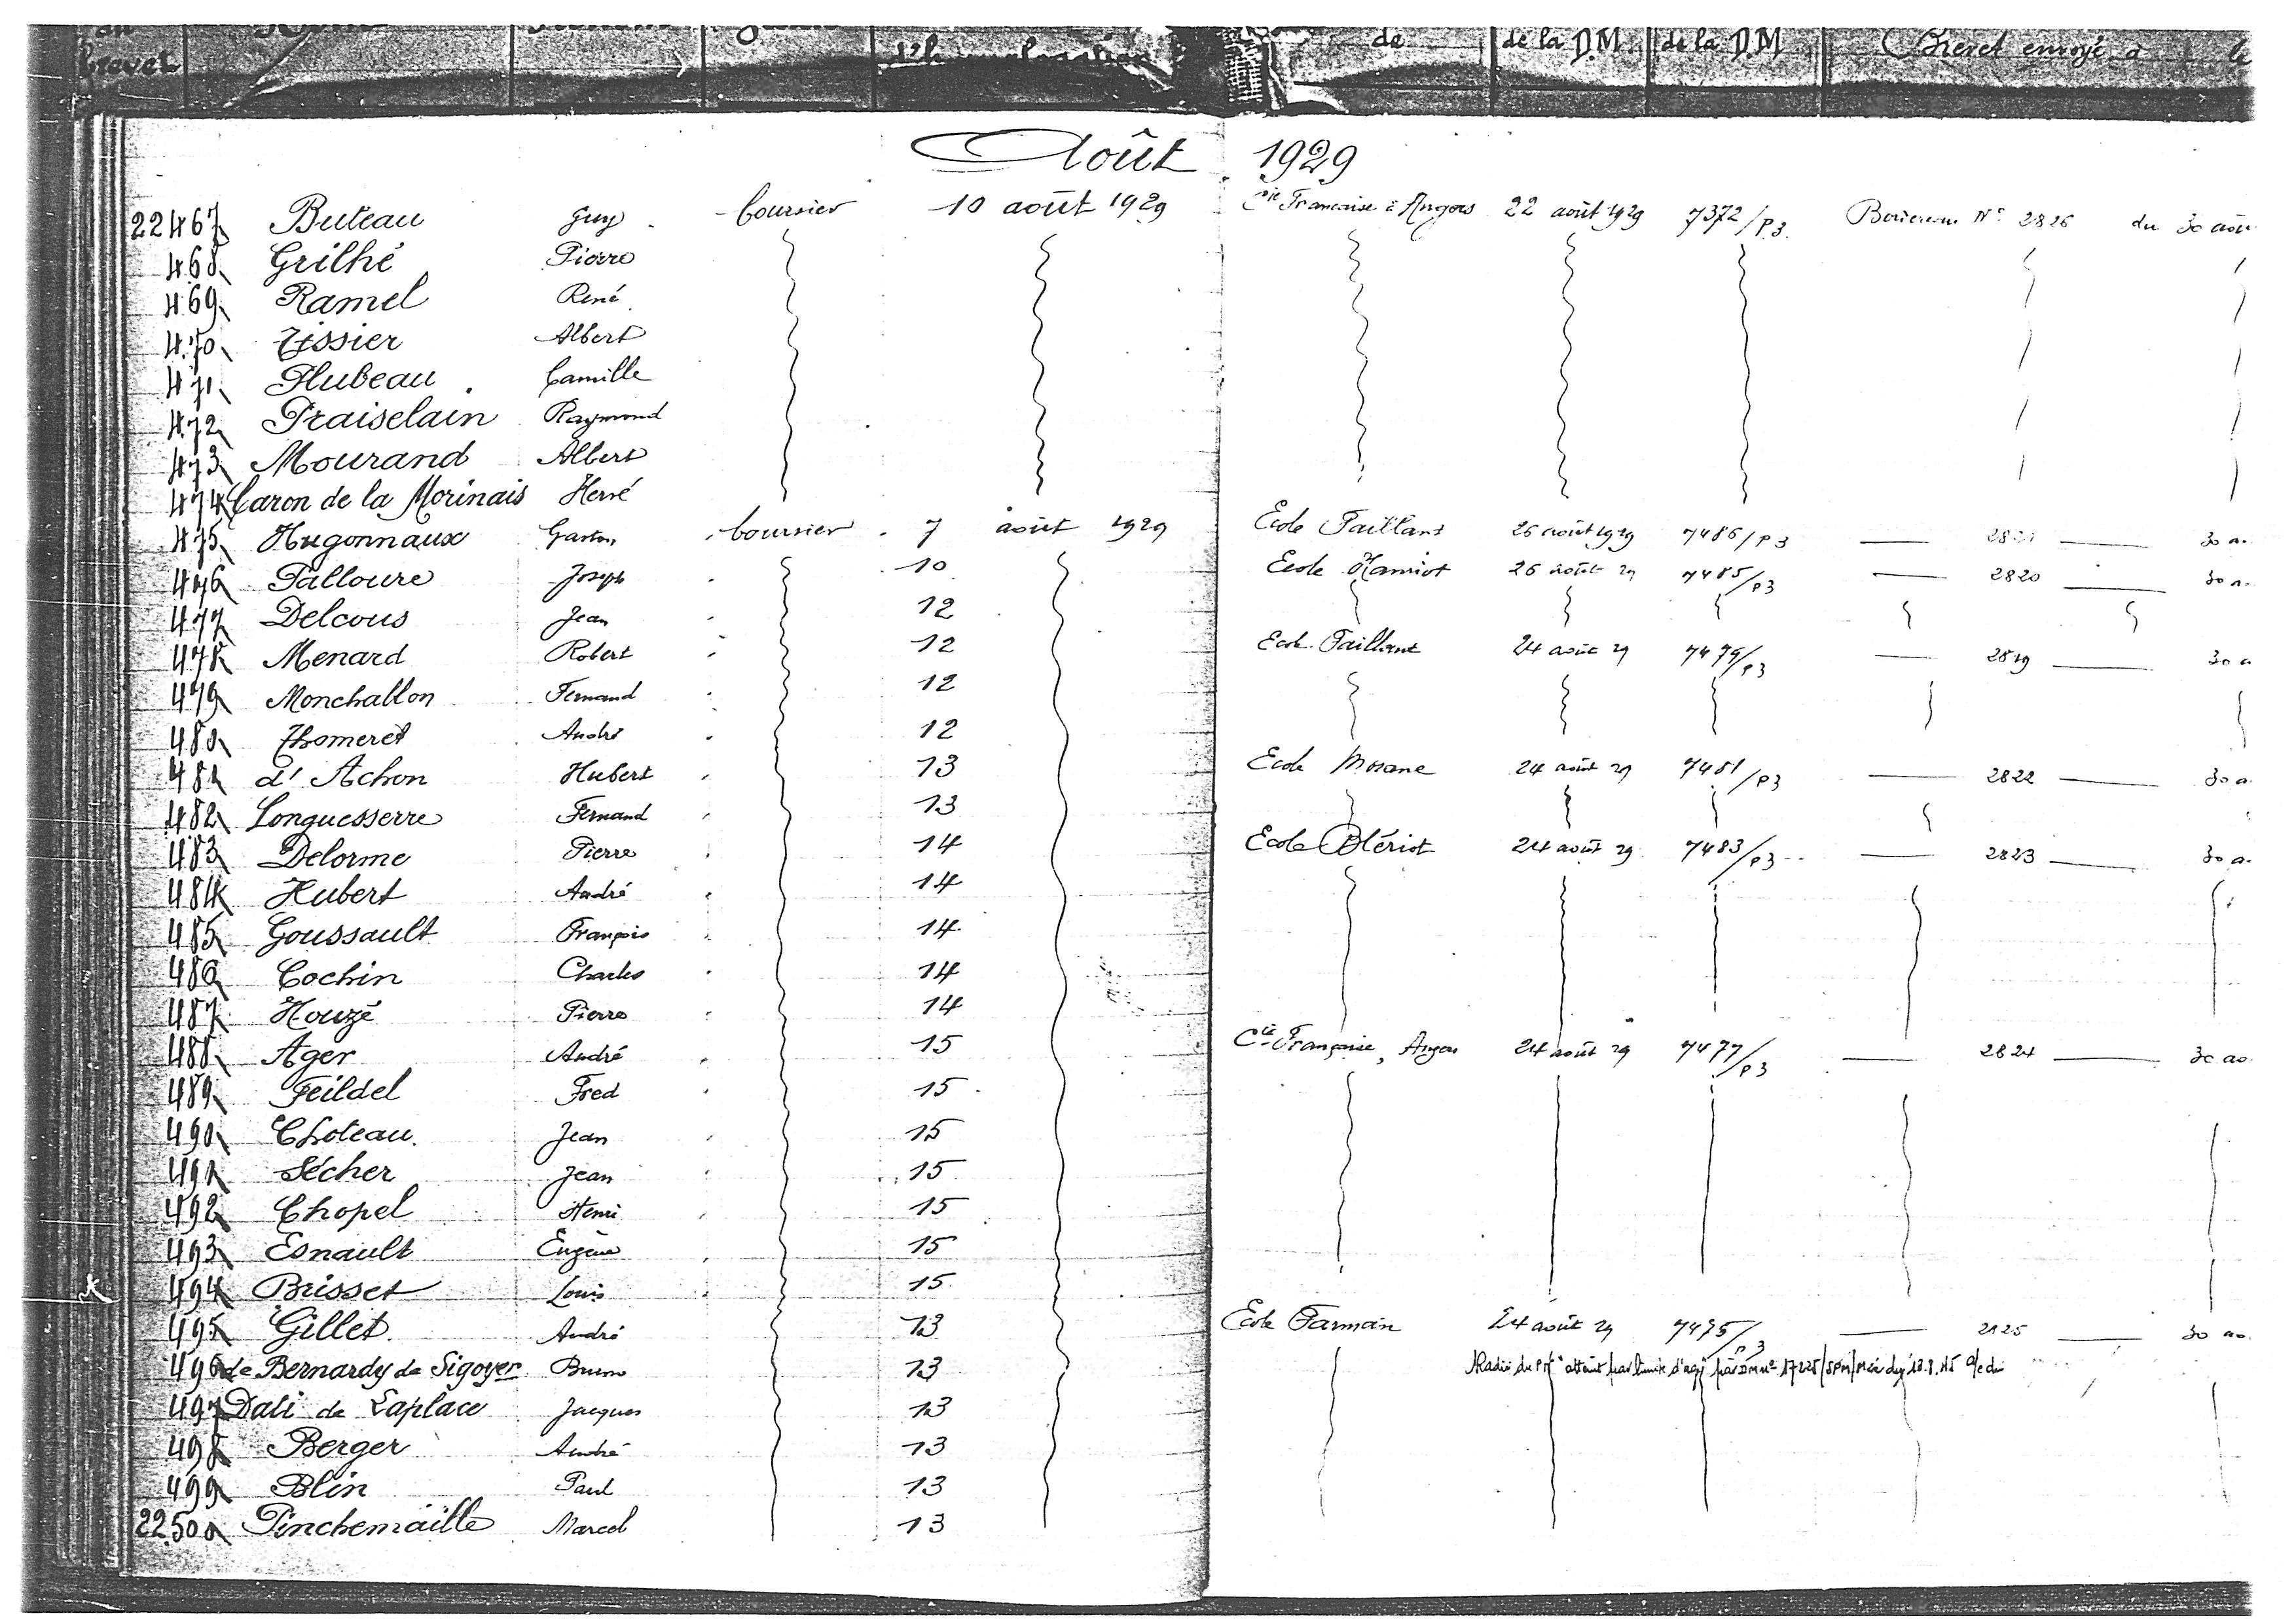 Brevet de de la D.M. de la D.M. Brevet envoyé à le
Août 1929
22467 Buteau Guy boursier 10 août 1929 Cie Francaise à Angers 22 août 1929 7372/P3. Bordereau N° 2826 du 30 aou
468 Grilhé Pierre
469 Ramel René
470 Tissier Albert
471 Flubeau Camille
472 Praiselain Raymond
473 Mourand Albert
474 Caron de la Morinais Hervé
475 Hugonnaux Gaston boursier 7 août 1929 Ecole Paillard 26 août 1929 7486/P3 30 a
476 Palloure Joseph 10 Ecole Hanriot 26 août 29 7485/P3 2820 30 a
477 Delcous Jean 12
478 Menard Robert 12 Ecole 24 août 29 7479/P3 2819 30 a
479 Monchallon Fernand 12
480 Thomeret André 12
481 d'Achon Hubert 13 Ecole Morane 24 août 29 7481/P3 2822 30 a
482 Longuesserre Fernand 13
483 Delorme Pierre 14 Ecole Blériot 24 août 29 7483/P3 2823 30 a
484 Hubert André 14
485 Goussault François 14
486 Cochin Charles 14
487 Houzé Pierre 14
488 Ager André 15 Cie Française, Angers 24 août 29 7477/P3 2824 30 ao
489 Feildel Fred 15
490 Choteau Jean 15
491 Sécher Jean 15
492 Chopel Henri 15
493 Esnault Eugène 15
494 Brisset Louis 15
495 Gillet André 13 Ecole Farman 24 août 29 7475/P3 2125 30 ao
496 de Bernardy de Sigoyer Bruno 13 Radié du PN "atteint par limite d'age" par DM n° 17225/SPM/
497 Dati de Laplace Jacques 13
498 Berger André 13
499 Blin Paul 13
22500 Pinchemaille Marcel 13